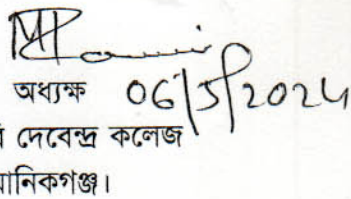 অধ্যক্ষ 06/5/2024
দেবেন্দ্র কলেজ
মানিকগঞ্জ।